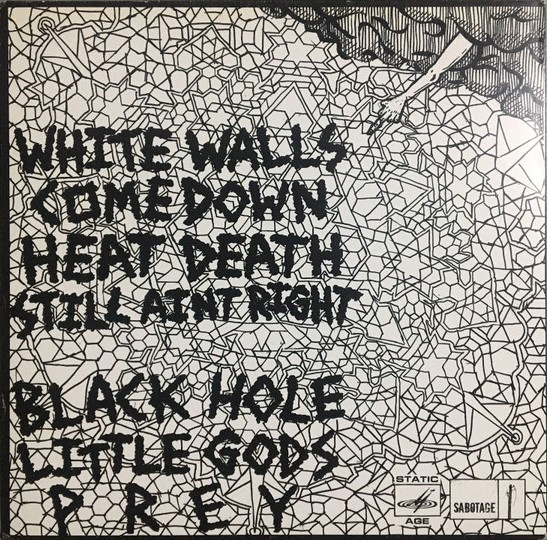 WHITE WALLS
COMEDOWN
HEAT DEATH
STILL AINT RIGHT
BLACK HOLE
LITTLE GODS
PREY
STATIC
AGE
SABOTAGE